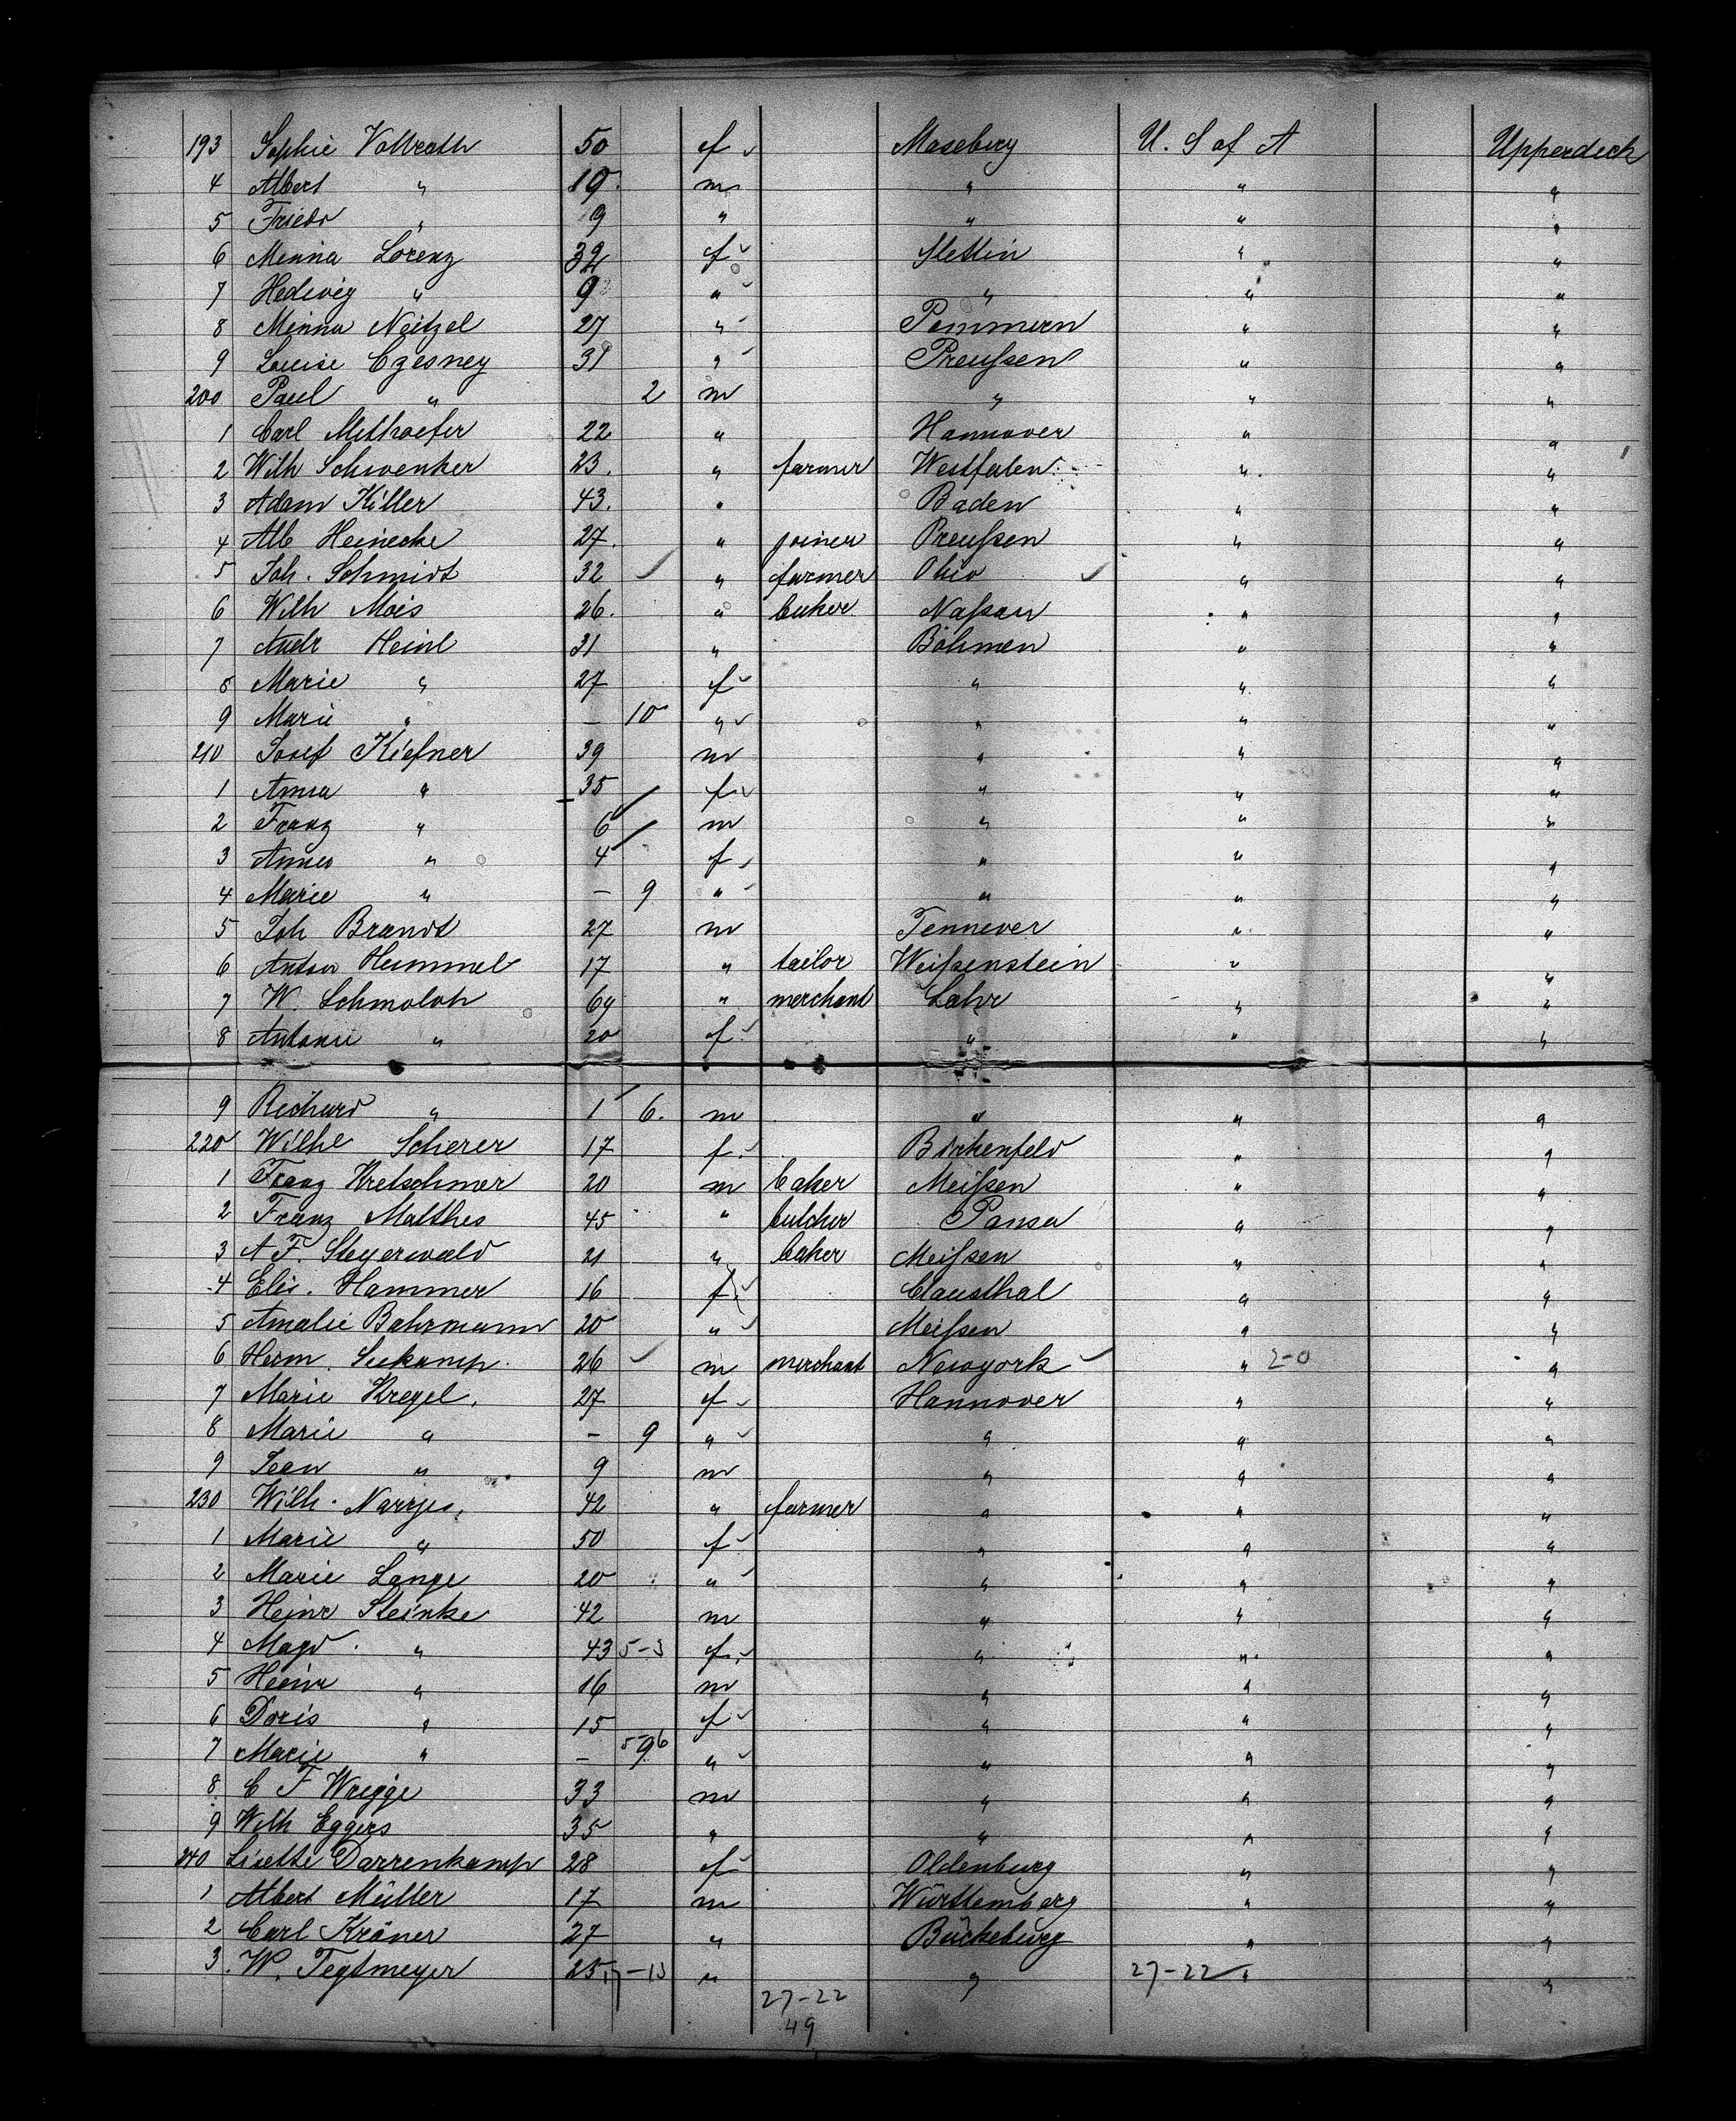 193 Sophie Vollrath 50 f Maseberg U. S of A Upperdeck
4 Albert " 19. m " " "
5 Friedr " 9 " " " "
6 Minna Lorenz 32 f Stettin " "
7 Hedwig " 9 " " " "
8 Minna Neitzel 27 " Pommern " "
9 Louise Czesney 31 " Preußen " "
200 Paul " 2 m " " "
1 Carl Methoefer 22 " Hannover " "
2 Wilh Schwenker 23. " farmer Westfalen " "
3 Adam Killer 43. " Baden " "
4 Alb Heinecke 27. " joiner Preußen " "
5 Joh. Schmidt 32 " farmer Ohio " "
6 Wilh Mois 26. " baker Naßau " "
7 Andr Heinl 31 " Böhmen " "
8 Marie " 27 f " " "
9 Marie " – 10 " " " "
210 Josef Kiefner 39 m " " "
1 Anna " 35 f " " "
2 Franz " 6 m " " "
3 Annes " 4 f " " "
4 Marie " – 9 " " " "
5 Joh Brandt 27 m Tennever " "
6 Anton Hummel 17 " tailor Weißenstein " "
7 W. Schmoloh 69 " merchant Lahr " "
8 Antonie " 20 f " " "
9 Richard " 1 6. m " " "
220 Wilhe Scherer 17 f Birkenfeld " "
1 Franz Kretschmer 20 m baker Meißen " "
2 Franz Matthes 45 " butcher Pansa " "
3 A F. Steyerwald 21 " baker Meißen " "
4 Elis. Hammer 16 f Clausthal " "
5 Amalie Bahrmann 20 " Meißen " "
6 Herm. Seekamp. 26 m merchant Newyork " 2-0 "
7 Marie Kregel. 27 f Hannover " "
8 Marie " – 9 " " " "
9 Jean " 9 m " " "
230 Wilh. Narrjes. 42 " farmer " " "
1 Marie " 50 f " " "
2 Marie Lange 20 " " " "
3 Heinr Steinke 42 m " " "
4 Magd. " 43 5-3 f " " "
5 Heinr " 16 m " " "
6 Doris " 15 f " " "
7 Marie " – 5-6 9 " " " "
8 C F Wregge 33 m " " "
9 Wilh Eggers 35 " " " "
240 Lisette Darrenkamp 28 f Oldenburg " "
1 Albert Müller 17 m Württemberg " "
2 Carl Kröner 27 " Bückeburg " "
3. W. Tegtmeyer 25 17-13 " " 27-22 " "
27-22
49